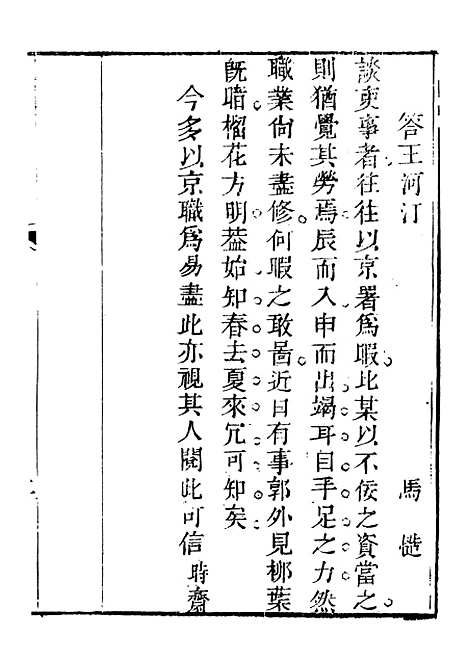 答王河汀　馬㦃
談吏事者往往以京署爲暇比某以不佞之資當之
則猶覺其勞焉辰而入申而出竭耳目手足之力然
職業尚未盡修何暇之敢啚近日有事郭外見柳葉
旣暗榴花方明葢始知春去夏來冗可知矣
今多以京職爲易盡此亦視其人閱此可信時齋